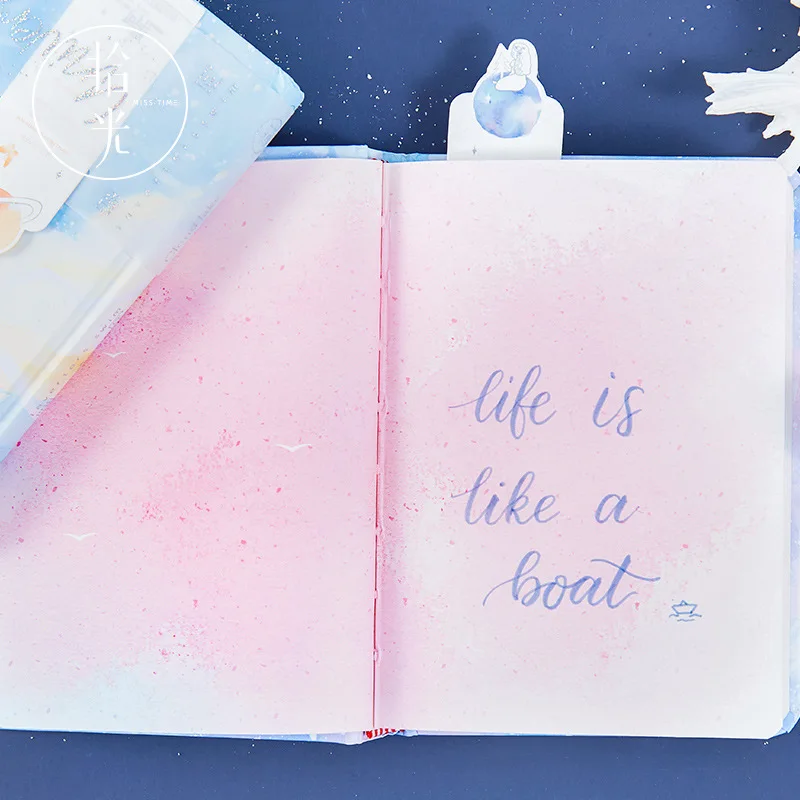 拾光
MISS TIME
life is
like a
boat